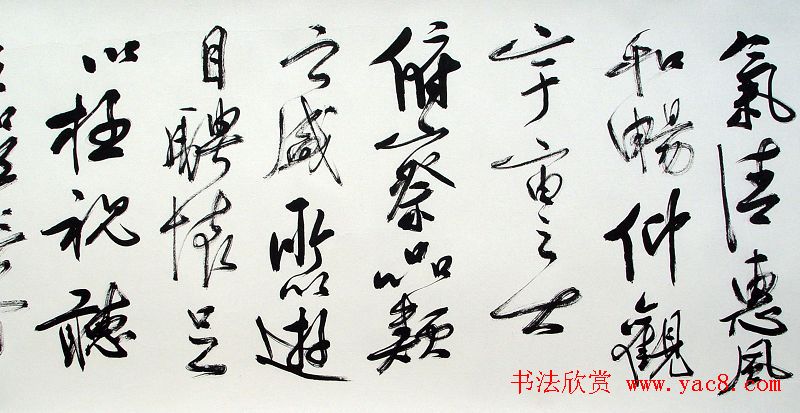 氣清惠風
和暢仰觀
宇宙之大
俯察品類
之盛所以遊
目騁懷足
以極視聽
书法欣赏 www.yac8.com